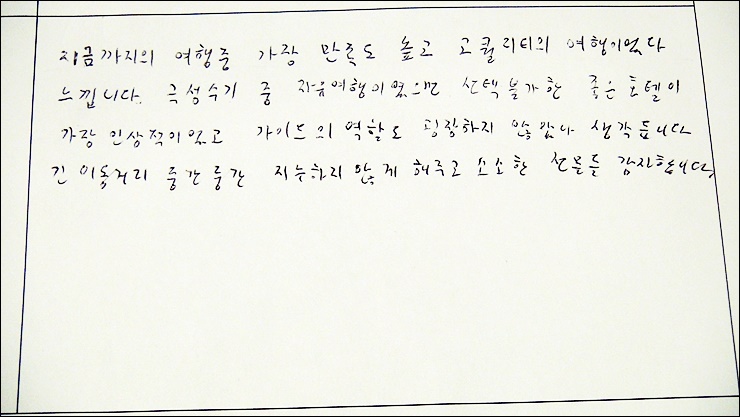 지금까지의 여행중 가장 만족도 높고 고퀄리티의 여행이었다
느낍니다. 극성수기 중 자유여행이었으면 선택불가한 좋은 호텔이
가장 인상적이었고 가이드의 역할도 굉장하지 않았나 생각듭니다
긴 이동거리 중간중간 지능하지 않게 해주고 소소한 선물들 감사합니다.